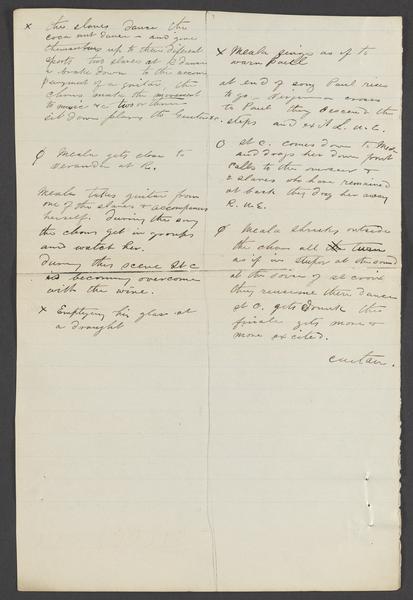 x the slaves dance the
coca nut dance in and give
themselves up to their different
sports two slaves at R dance
a brake down to the accom
paniment of a guitar, the
chorus make the movement
to music &c two or three
sit down playing the Guitars.
ϕ Meala gets close to
verandar at R.
Meala takes guitar from
one of the slaves & accompanies
herself. During the song
the chorus get in groups
and watch her.
During this scene St C
is becoming overcome
with the wine.
x Emptying his glass at
a draught
x Meala sings as if to
warn Paul
at end of song Paul rises
to go Virginia crosses
to Paul they descend the
steps and exit L. U. E.
O St C. comes down to Mea
and drags her down front
calls to the overseer &
2 slaves who have remained
at back they drag her away
R. U. E.
ϕ Meala shrieks outside
the chorus all turn
as if in stupor at the sound
at the voice of St croix
they resume their dance
St C. gets drunk the
finale gets more &
more excited.
curtain.